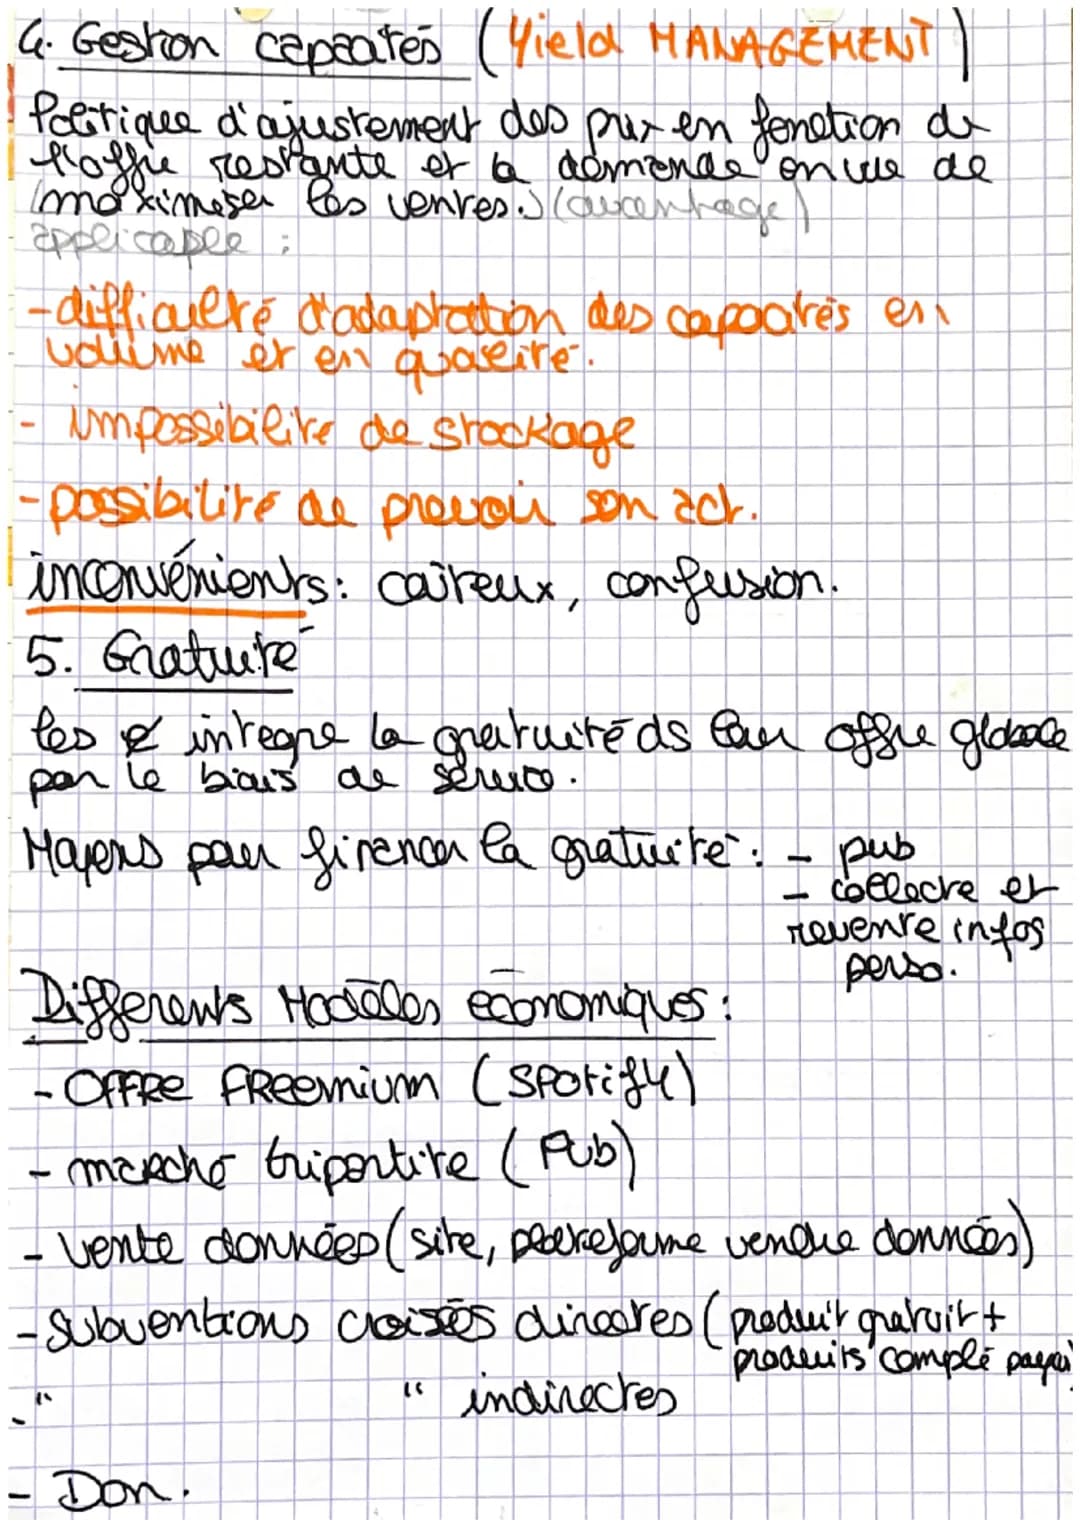 4. Gestion capacités (Yield MANAGEMENT)
Politique d'ajustement des prix en fonction de
l'offre restante et la demande en vue de
maximiser les ventes. (avantage)
applicable :
- difficulté d'adaptation des capacités en
volume et en qualité.
- impossibilité de stockage
- possibilité de prevoir son act.
inconvénients : coûteux, confusion.
5. Gratuité
les e integre la gratuité ds leur offre globale
par le biais de service.
Moyens pour financer la gratuité : - pub
- collecte et
revente infos
perso.
Différents Modèles économiques :
- OFFRE FREEmium (SPOtify)
- marché tripartite (Pub)
- vente données (site, plateforme vendre données)
- Subventions croisés directes (produit gratuit +
produits complé payan
- " " indirectes
- Don.